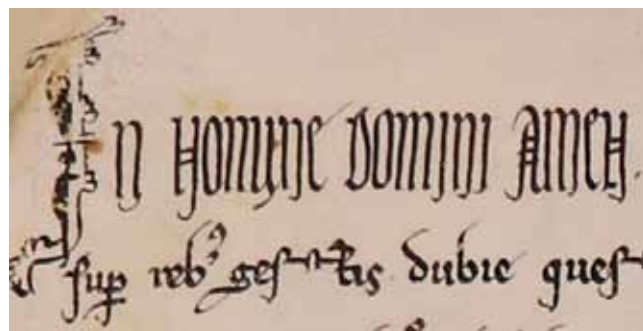 In nomine domini amen.
sup reb9 gestis dubie ques